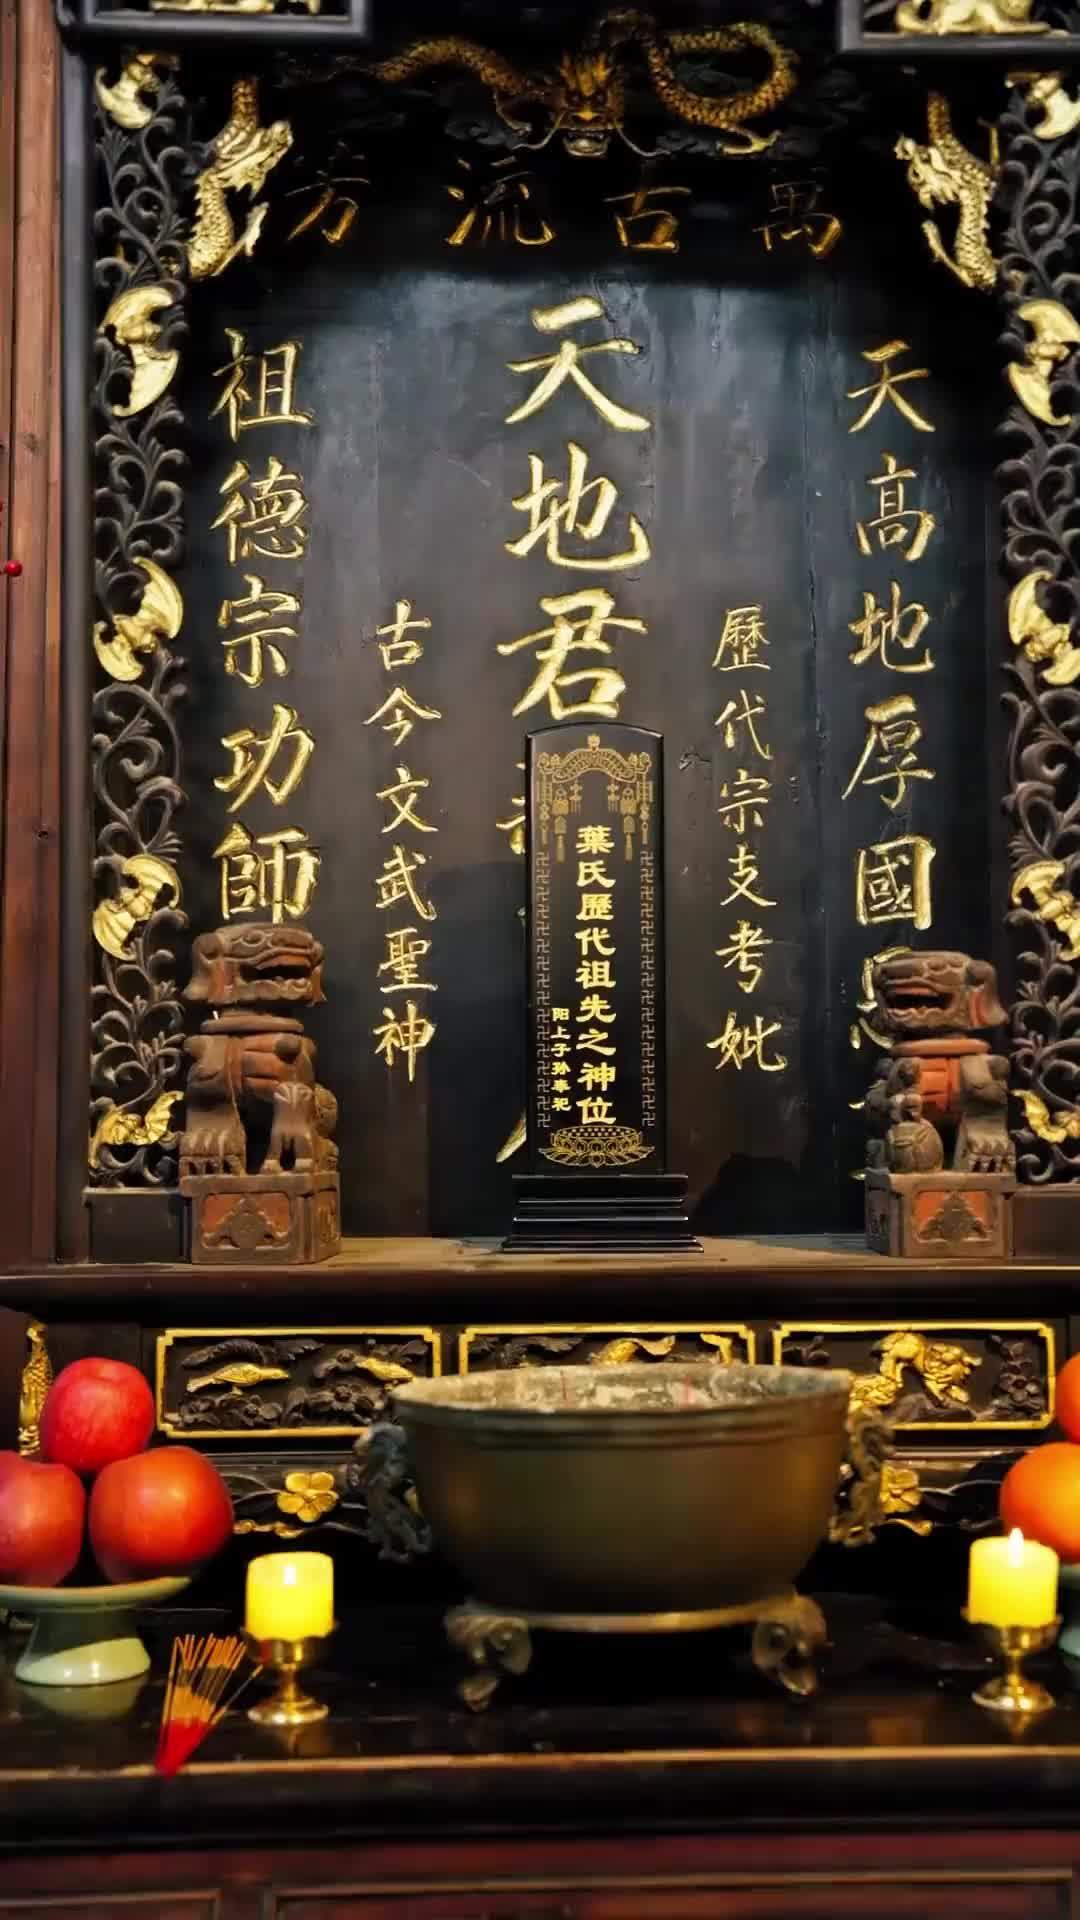 萬古流芳
天高地厚國
歷代宗支考妣
天地君
葉氏歷代祖先之神位
阳上子孙奉祀
古今文武聖神
祖德宗功師